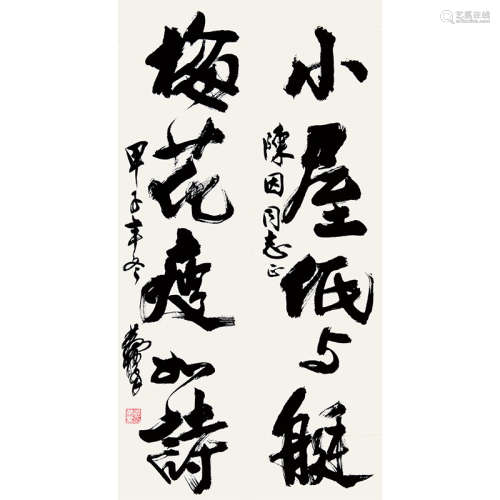 小屋低与艇
陳因同志正
梅花瘦如詩
甲子年冬